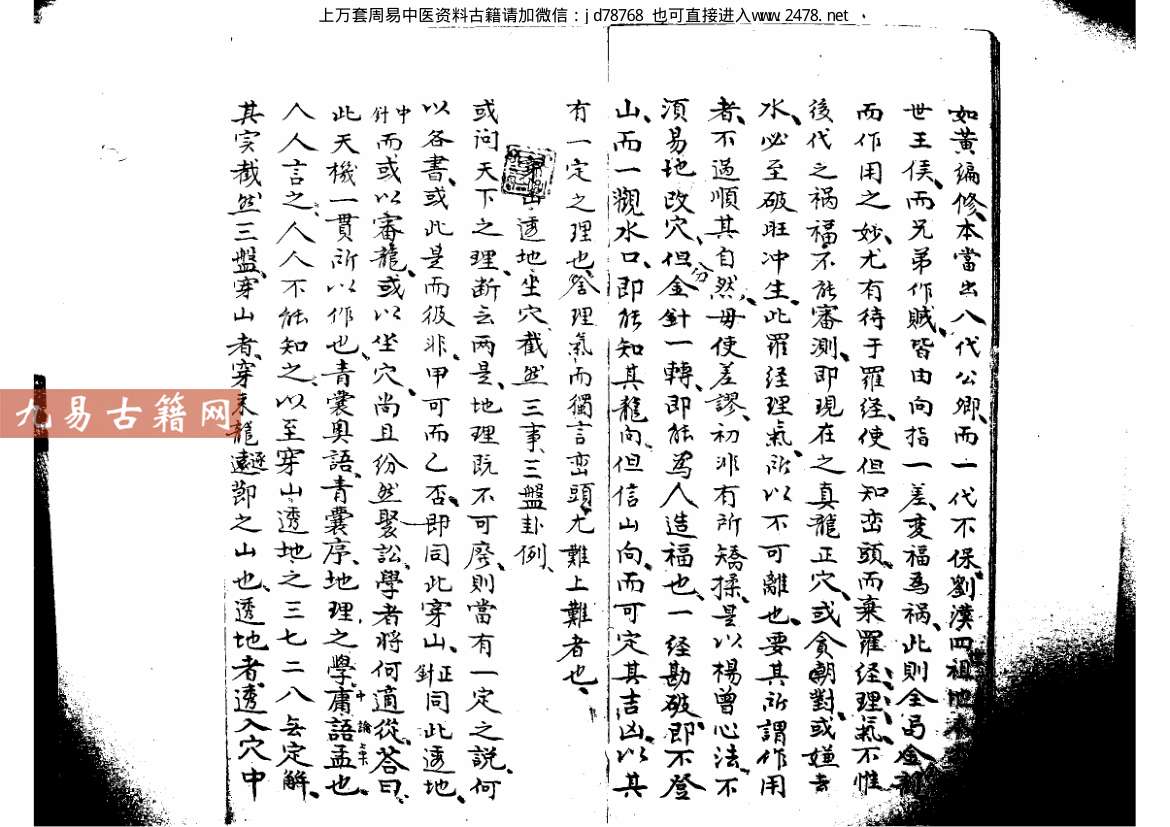 上万套周易中医资料古籍请加微信：jd78768 也可直接进入www.2478.net
如黃編修本當出八代公卿而一代不保劉漢四祖地
世王侯而兄弟作賊皆由向指一差变福爲禍此則全
而作用之妙尤有待于羅经使但知峦頭而棄羅经理氣不惟
後代之禍福不能審測即現在之真龍正穴或貪朝對或嫌去
水必至破旺冲生此羅经理氣所以不可離也要其所謂作用
者不過順其自然毋使差謬初非有所矯揉是以楊曾心法不
湏易地改穴但分金針一轉即能爲人造福也一经勘破即不登
山而一觀水口即能知其龍向但信山向而可定其吉凶以其
有一定之理也舍理氣而獨言峦頭尤難上難者也
穿山透地坐穴截然三事三盤卦例
或问天下之理断云两是地理既不可廢則當有一定之說何
以各書或此是而彼非甲可而乙否即同此穿山正針同此透地
中針而或以審龍或以坐穴尚且纷然聚訟學者將何適從荅曰
此天機一貫所以作也青囊奥語青囊序地理之學庸語孟也
人人言之人人不能知之以至穿山透地之三七二八無定解
其实截然三盤穿山者穿来龍遠節之山也透地者透入穴中
九易古籍网